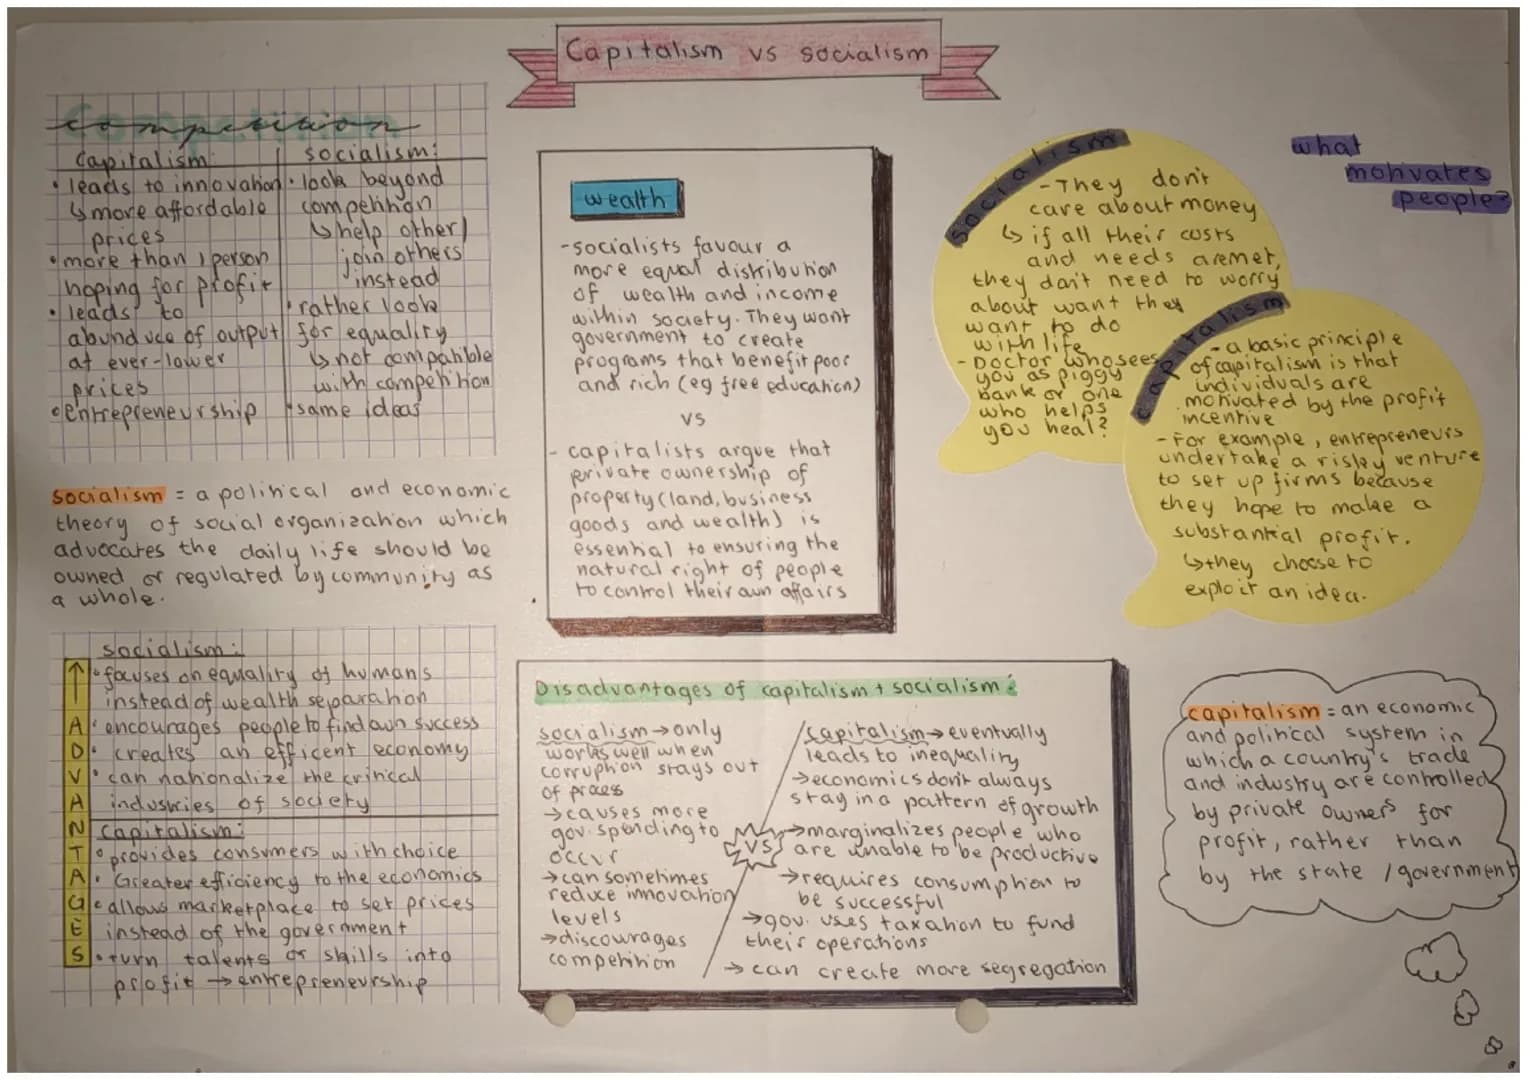 Capitalism vs socialism
competition
capitalism:
• leads to innovation
↳ more affordable
prices
• more than 1 person
hoping for profit
• leads to
abunduce of output
at ever-lower
prices
• entrepreneurship
socialism:
• look beyond
competition
↳ help other/
join others
instead
• rather look
for equality
↳ not compatible
with competition
• same ideas
socialism = a political and economic
theory of social organization which
advocates the daily life should be
owned or regulated by community as
a whole.
ADVANTAGES
socialism:
• focuses on equality of humans
instead of wealth separation
• encourages people to find own success
• creates an efficent economy
• can nationalize the critical
industries of society
capitalism:
• provides consumers with choice
• Greater efficiency to the economics
• allows marketplace to set prices
instead of the government
• turn talents or skills into
profit → entrepreneurship
wealth
- socialists favour a
more equal distribution
of wealth and income
within society. They want
government to create
programs that benefit poor
and rich (eg free education)
vs
- capitalists argue that
private ownership of
property (land, business
goods and wealth) is
essential to ensuring the
natural right of people
to control their own affairs
Disadvantages of capitalism + socialism:
socialism → only
works well when
corruption stays out
of process
→ causes more
gov. spending to
occur
→ can sometimes
reduce innovation
levels
→ discourages
competition
VS
capitalism → eventually
leads to inequality
→ economics don't always
stay in a pattern of growth
→ marginalizes people who
are unable to be productive
→ requires consumption to
be successful
→ gov. uses taxation to fund
their operations
→ can create more segregation
what
motivates
people?
socialism
- They don't
care about money
↳ if all their costs
and needs are met,
they don't need to worry
about want they
want to do
with life
- Doctor who sees
you as piggy
bank or one
who helps
you heal?
capitalism
- a basic principle
of capitalism is that
individuals are
motivated by the profit
incentive
- For example, entrepreneurs
undertake a risky venture
to set up firms because
they hope to make a
substantial profit.
↳ they choose to
exploit an idea.
capitalism = an economic
and political system in
which a country's trade
and industry are controlled
by private owners for
profit, rather than
by the state / government